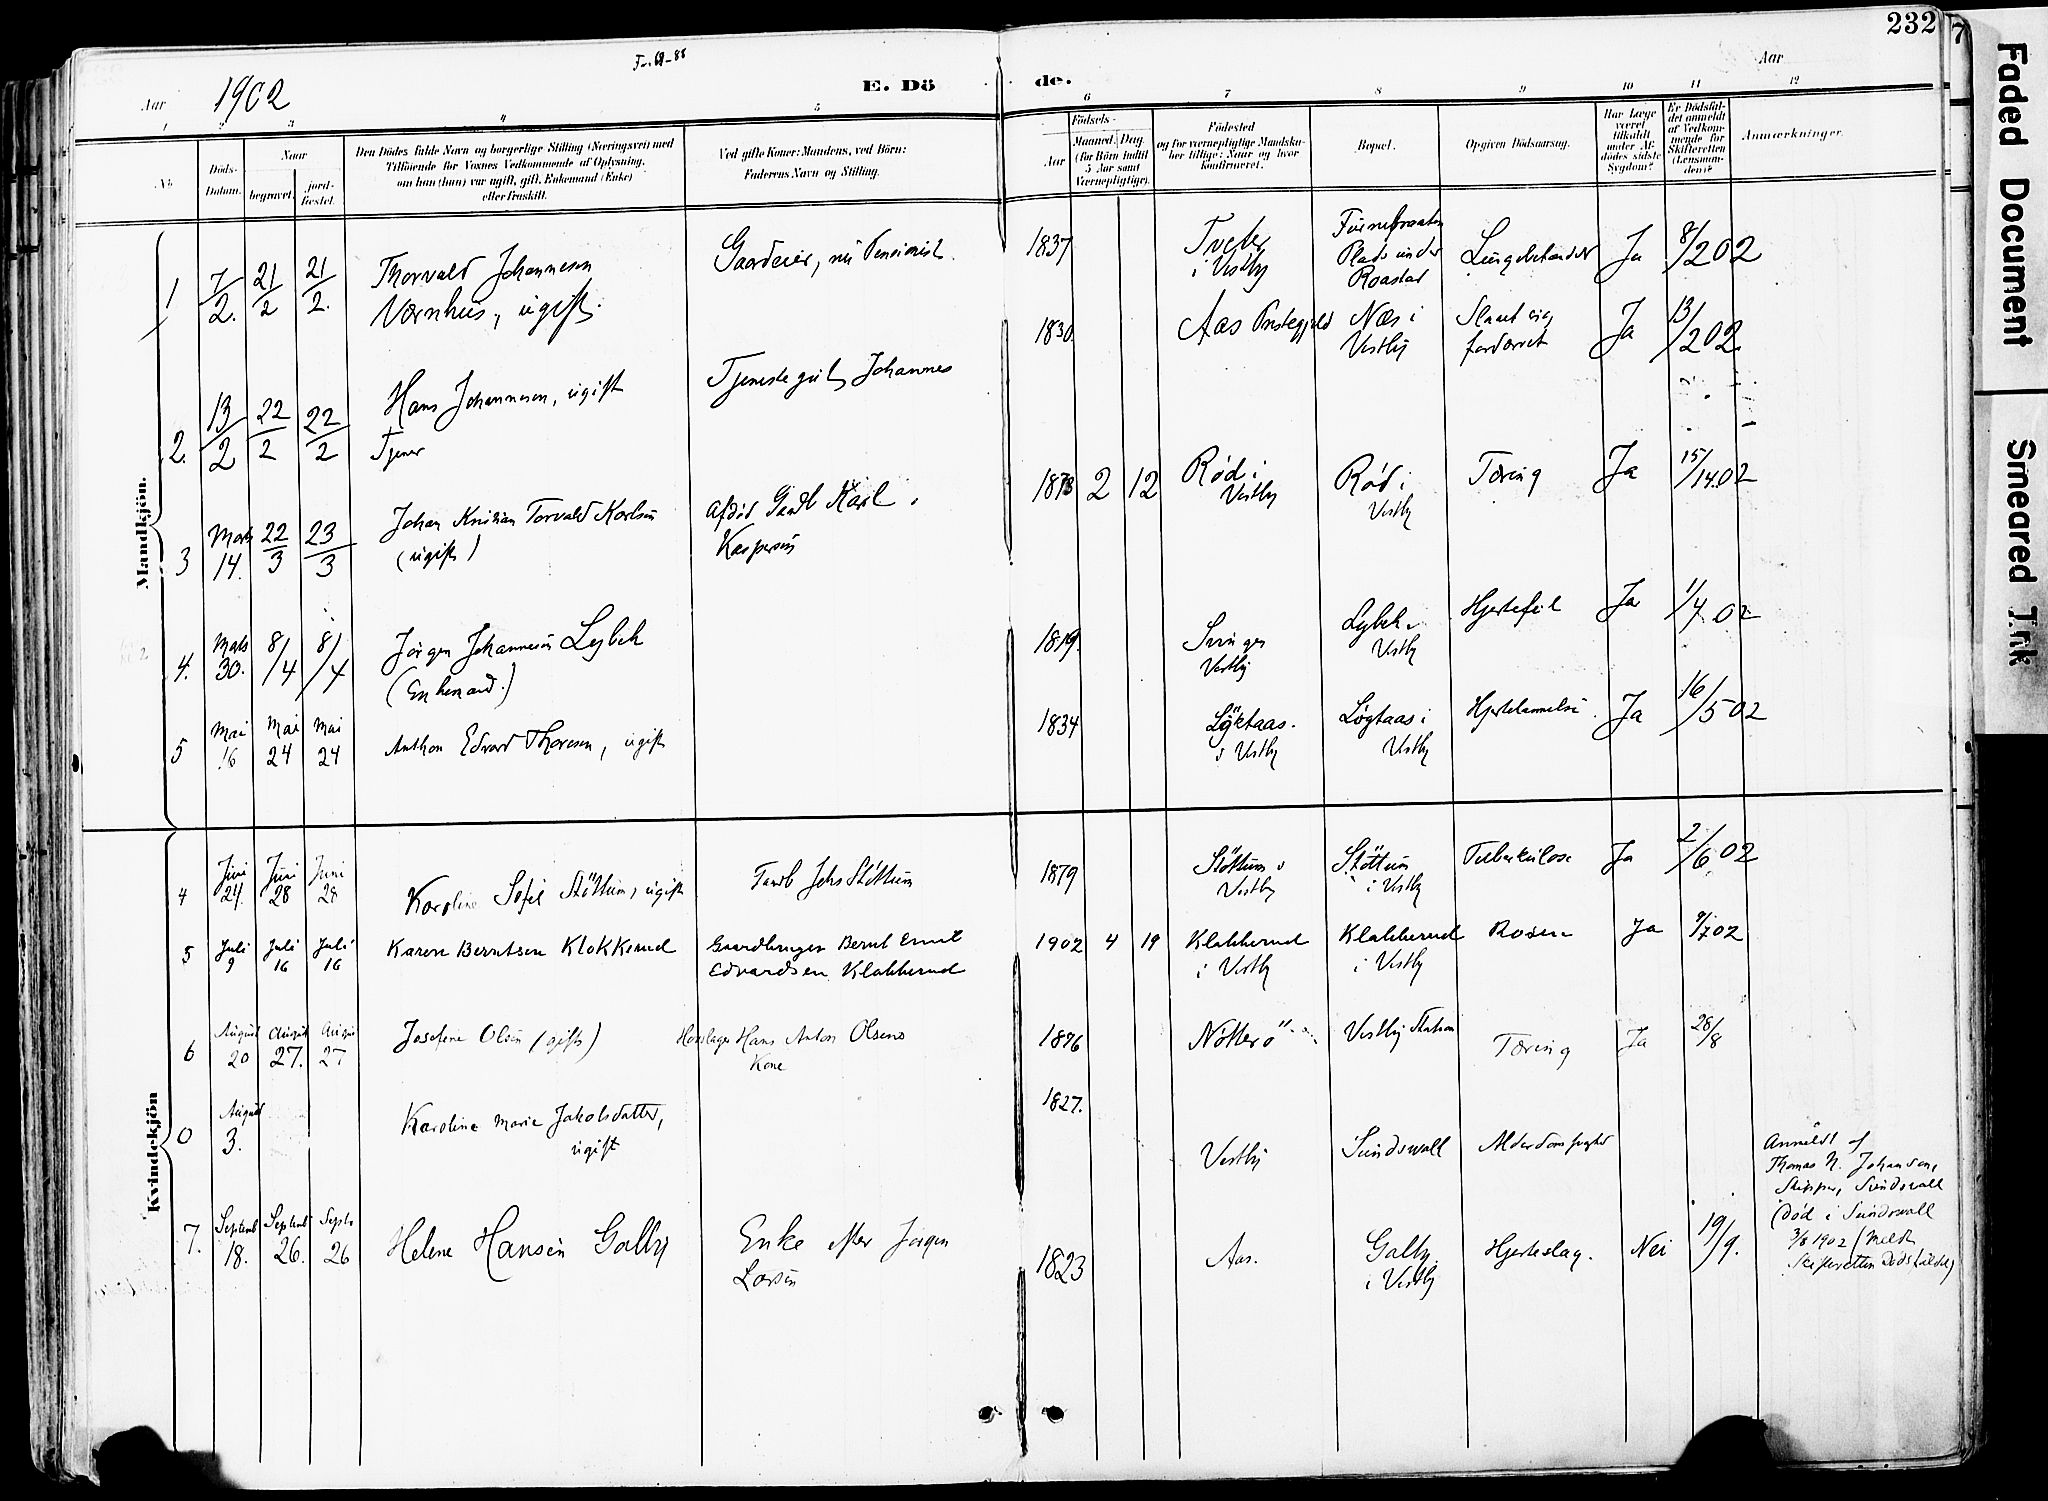 232
Aar 1902
E. Döde.
Aar
1 2 3 4 5 6 7 8 9 10 11 12
No.
Döds-Datum.
Naar
begravet.
jord-fæstet.
Den Dödes fulde Navn og borgerlige Stilling (Næringsvei) med
Tilföiende for Voxnes Vedkommende af Oplysning,
om han (hun) var ugift, gift, Enkemand (Enke)
eller fraskilt.
Ved gifte Koner: Mandens, ved Börn:
Faderens Navn og Stilling.
Födsels-
Aar
Maaned. Dag.
(for Börn indtil
5 Aar samt
Værnepligtige).
Födested
og for værnepligtige Mandska-
ber tillige: Naar og hvor
konfirmeret.
Bopæl.
Opgiven Dödsaarsag.
Har Læge
været
tilkaldt
under Af-
dödes sidste
Sygdom?
Er Dödsfal-
det anmeldt
af Vedkom-
mende for
Skifteretten
(Lensman-
den)?
Anmærkninger.
Mandkjön.
1 7/2. 21/2 21/2. Thorvald Johannesen
Vernhus, ugift.
Gaardeier, nu Pensionist.
1837 Tveter
i Vestby
Plads under
Roastad
Lungebetændelse Ja 8/2 02
2. 13/2 22/2 22/2 Hans Johannesen, ugift
Tjener
Tjenestegut Johannes
1830. Aas Prstegjeld Næs i
Vestby
fordærvet Ja 13/2 02.
3 Marts 14. 22/3 23/3 Johan Kristian Torvald Karlsen
(ugift)
Afdød Gaardb Karl
Kaspersen
1873 2 12 Rød i
Vestby
Rød i
Vestby
Tæring Ja 15/14.02
4. Mats 30. 8/4 8/4 Jörgen Johannesen Lybek
(Enkemand.)
1819. Vestby
Lybek
Vestby
Hjertefeil Ja 1/4 02
5 Mai 16 Mai 24 Mai 24 Anthon Edvard Thoresen, ugift
1834 Löktaas.
i Vestby
Løgtaas i
Vestby
Hjertelammelse. Ja 16/5 02
Kvindekjön
4 Juni 24. Juni 28 Juni 28 Karoline Sofie Stöttum, ugift
Gaardb Johs Stöttum
1879 Stöttum i
Vestby
Stöttum
i Vestby
Tuberkulose Ja 2/6 02
5 Juli 9 Juli 16 Juli 16 Karen Berntsen Klokkerud
Gaardbruger Bernt Emil
Edvardsen Klokkerud
1902 4 19 Klokkerud
i Vestby
Klokkerud
i Vestby
Rosen Ja 9/7 02
6 August 20 August 27. August 27 Josefine Olsen (gift)
Hovslager Hans Anton Olsens
Kone
1876 Nötterö Vestby Station Tæring Ja 28/8
0 August 3. Karoline Marie Jakobsdatter,
ugift
1827. Vestby Sundswall Alderdomssvaghed
Anmeldt af
Thomas N. Johansen,
Skipper, Sundsvall
(død i Sundswall
3/8 1902 (Meldt
Skifteretten Dödsfaldet)
7. Septemb 18. Septemb 26. Septb 26 Helene Hansen Galby
Enke efter Jörgen
Larsen
1823 Aas. Galby
i Vestby
Hjerteslag. Nei 19/9.
Faded Document
Smeared Ink